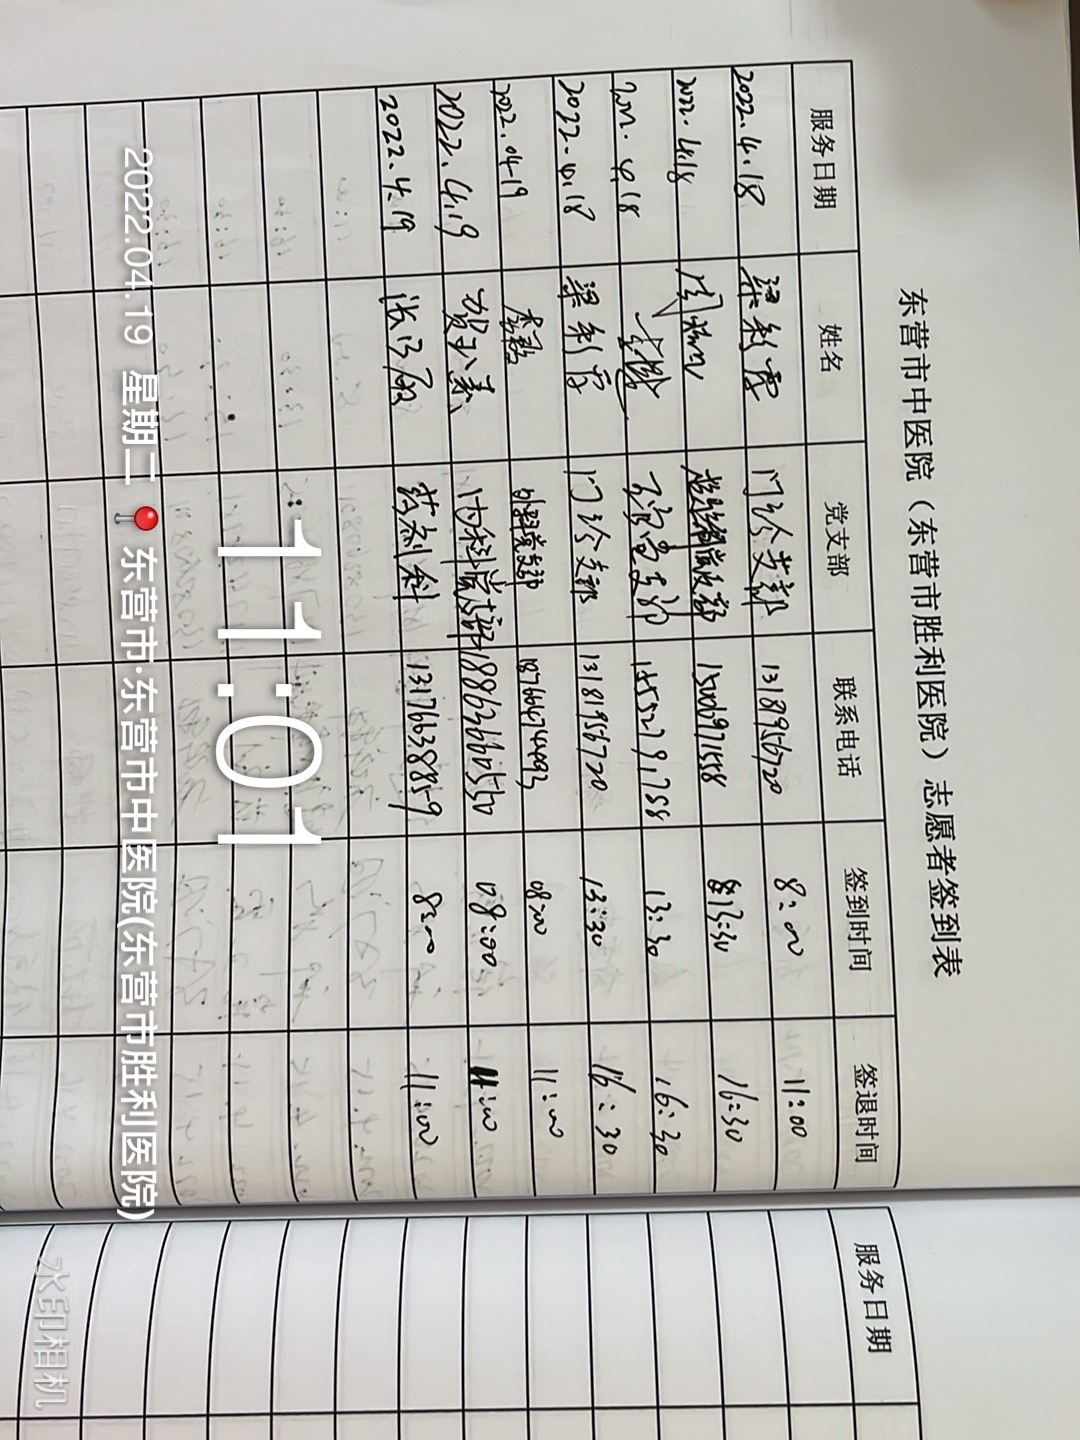 东营市中医院（东营市胜利医院）志愿者签到表
服务日期 姓名 党支部 联系电话 签到时间 签退时间
2022.4.18 梁利霞 门诊支部 13181956720 8:00 11:00
2022.4.18 15006971558 13:30 16:30
2022.4.18 15552791758 13:30 16:30
2022.4.18 梁利霞 门诊支部 13181956720 13:30 16:30
2022.04.19 李毅 外科党支部 18766474493 08:00 11:00
2022.4.19 贺玉素 内科党支部 18863660550 08:00 11:00
2022.4.19 药剂科 13176638859 8:00 11:00
服务日期
11:01
2022.04.19 星期二 东营市·东营市中医院(东营市胜利医院)
水印相机